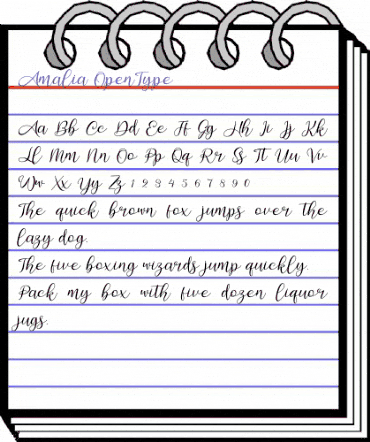 Amalia OpenType
Aa Bb Cc Dd Ee Ff Gg Hh Ii Jj Kk
Ll Mm Nn Oo Pp Qq Rr Ss Tt Uu Vv
Ww Xx Yy Zz 1 2 3 4 5 6 7 8 9 0
The quick brown fox jumps over the
lazy dog.
The five boxing wizards jump quickly.
Pack my box with five dozen liquor
jugs.